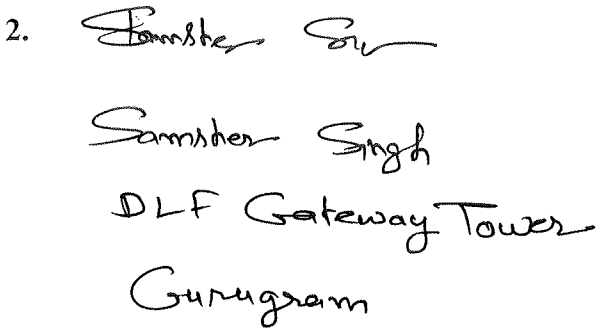 2. Samsher
Samsher Singh
DLF Gateway Tower
Gurugram